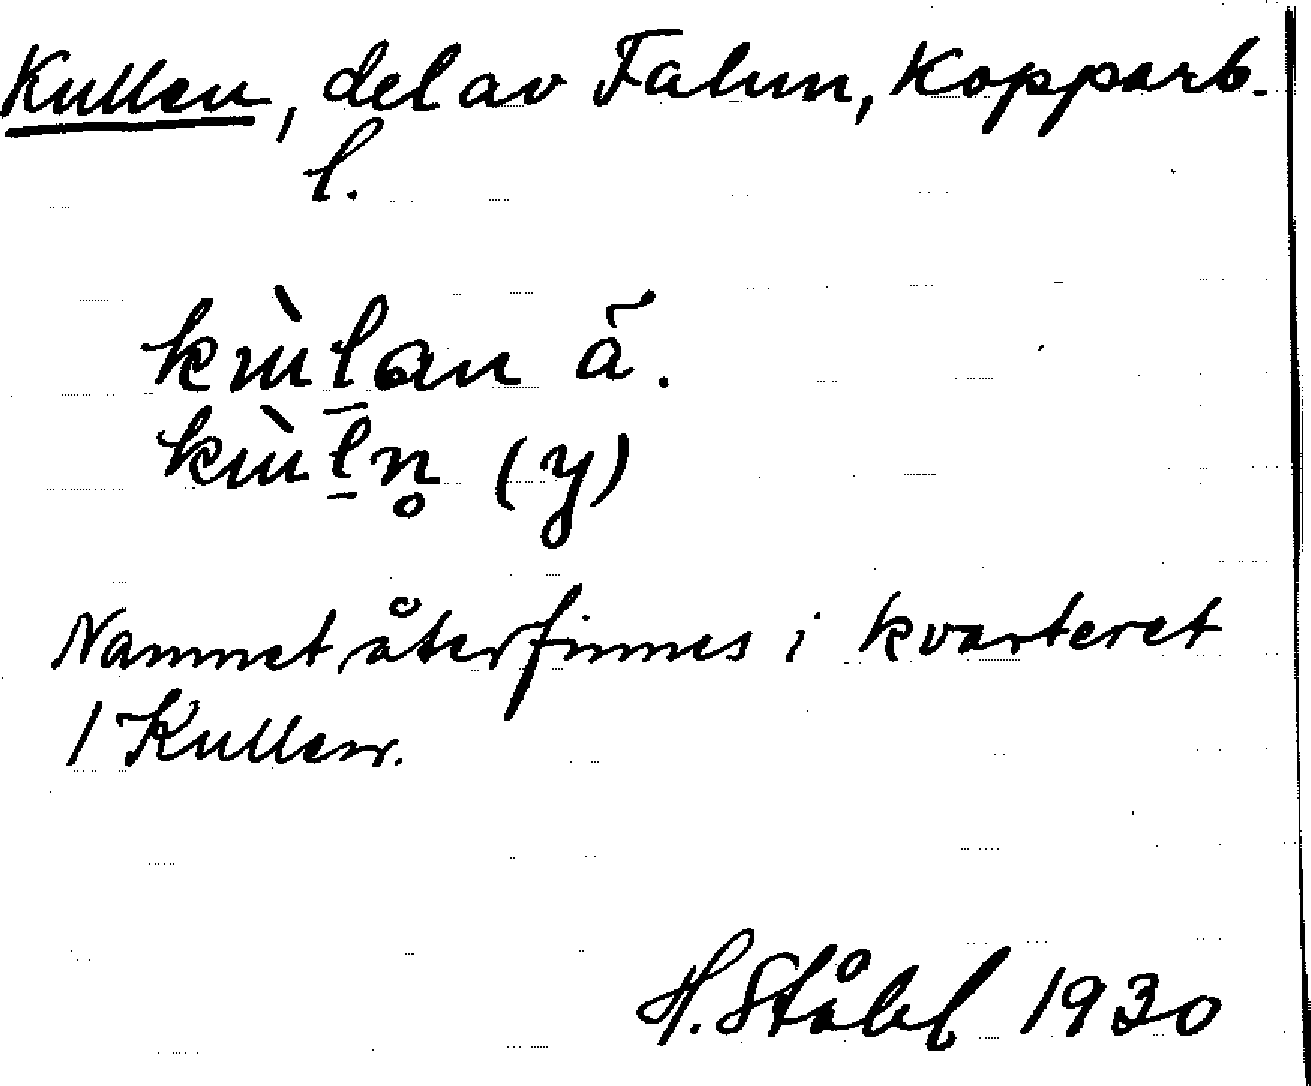 Kullen, del av Falun, Kopparb.
l.
kùl̠an ä.
kùl̠n̥ (y)
Namnet återfinnes i kvarteret
/ Kullen.
H. Ståhl 1930